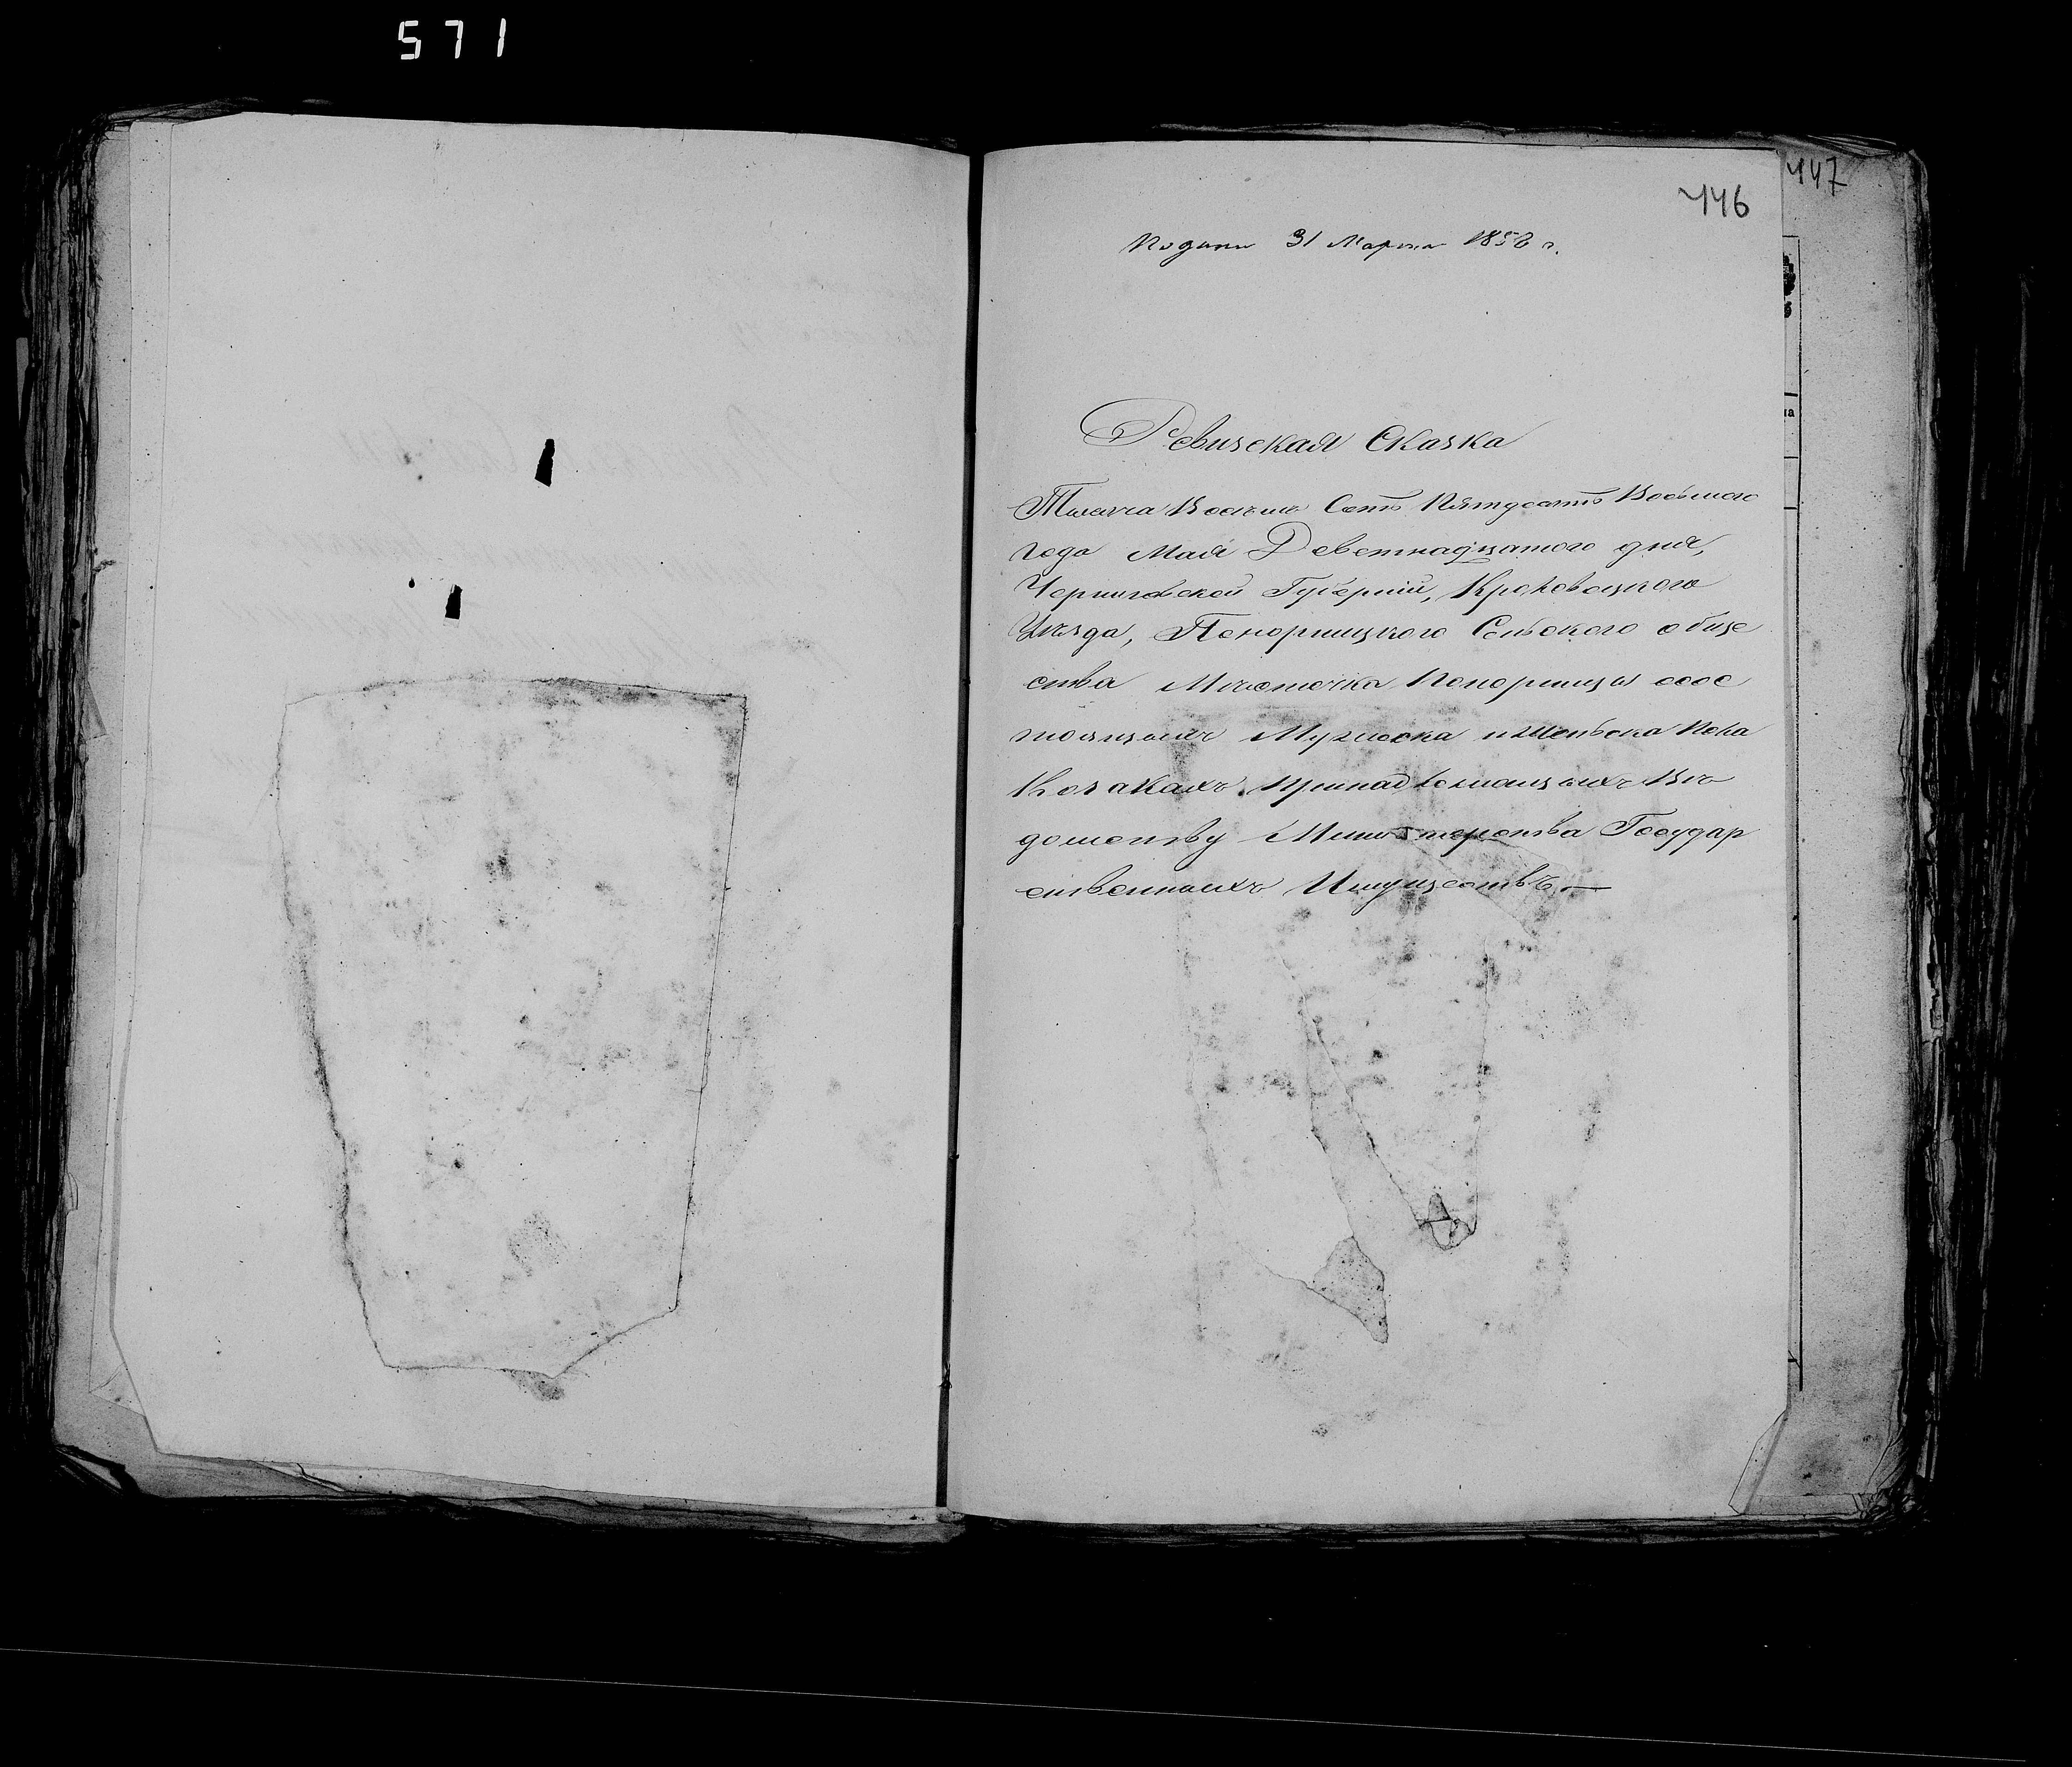 571
447
446
Подана 31 Марта 1858 г.
Ревизская Сказка
Тысяча Восемь Сотъ Пятдесятъ Восьмого
года Мая Деветнадцатого дня,
Черниговской Губерніи, Кролевецкого
Уѣзда, Понорницкого Сельского обще
ства Мѣстечка Понорницы осос
тоящихъ Мужеска и Женьска Пола
Козакахъ Принадлежащихъ Вѣ
домству Министерства Государ
ственныхъ Имуществъ.—
на